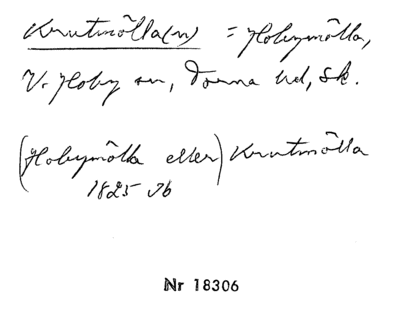 Krutmölla(n) = Hobymölla,
V. Hoby sn, Torna hd, Sk.
(Hobymölla eller) Krutmölla
1825 Jb
Nr 18306